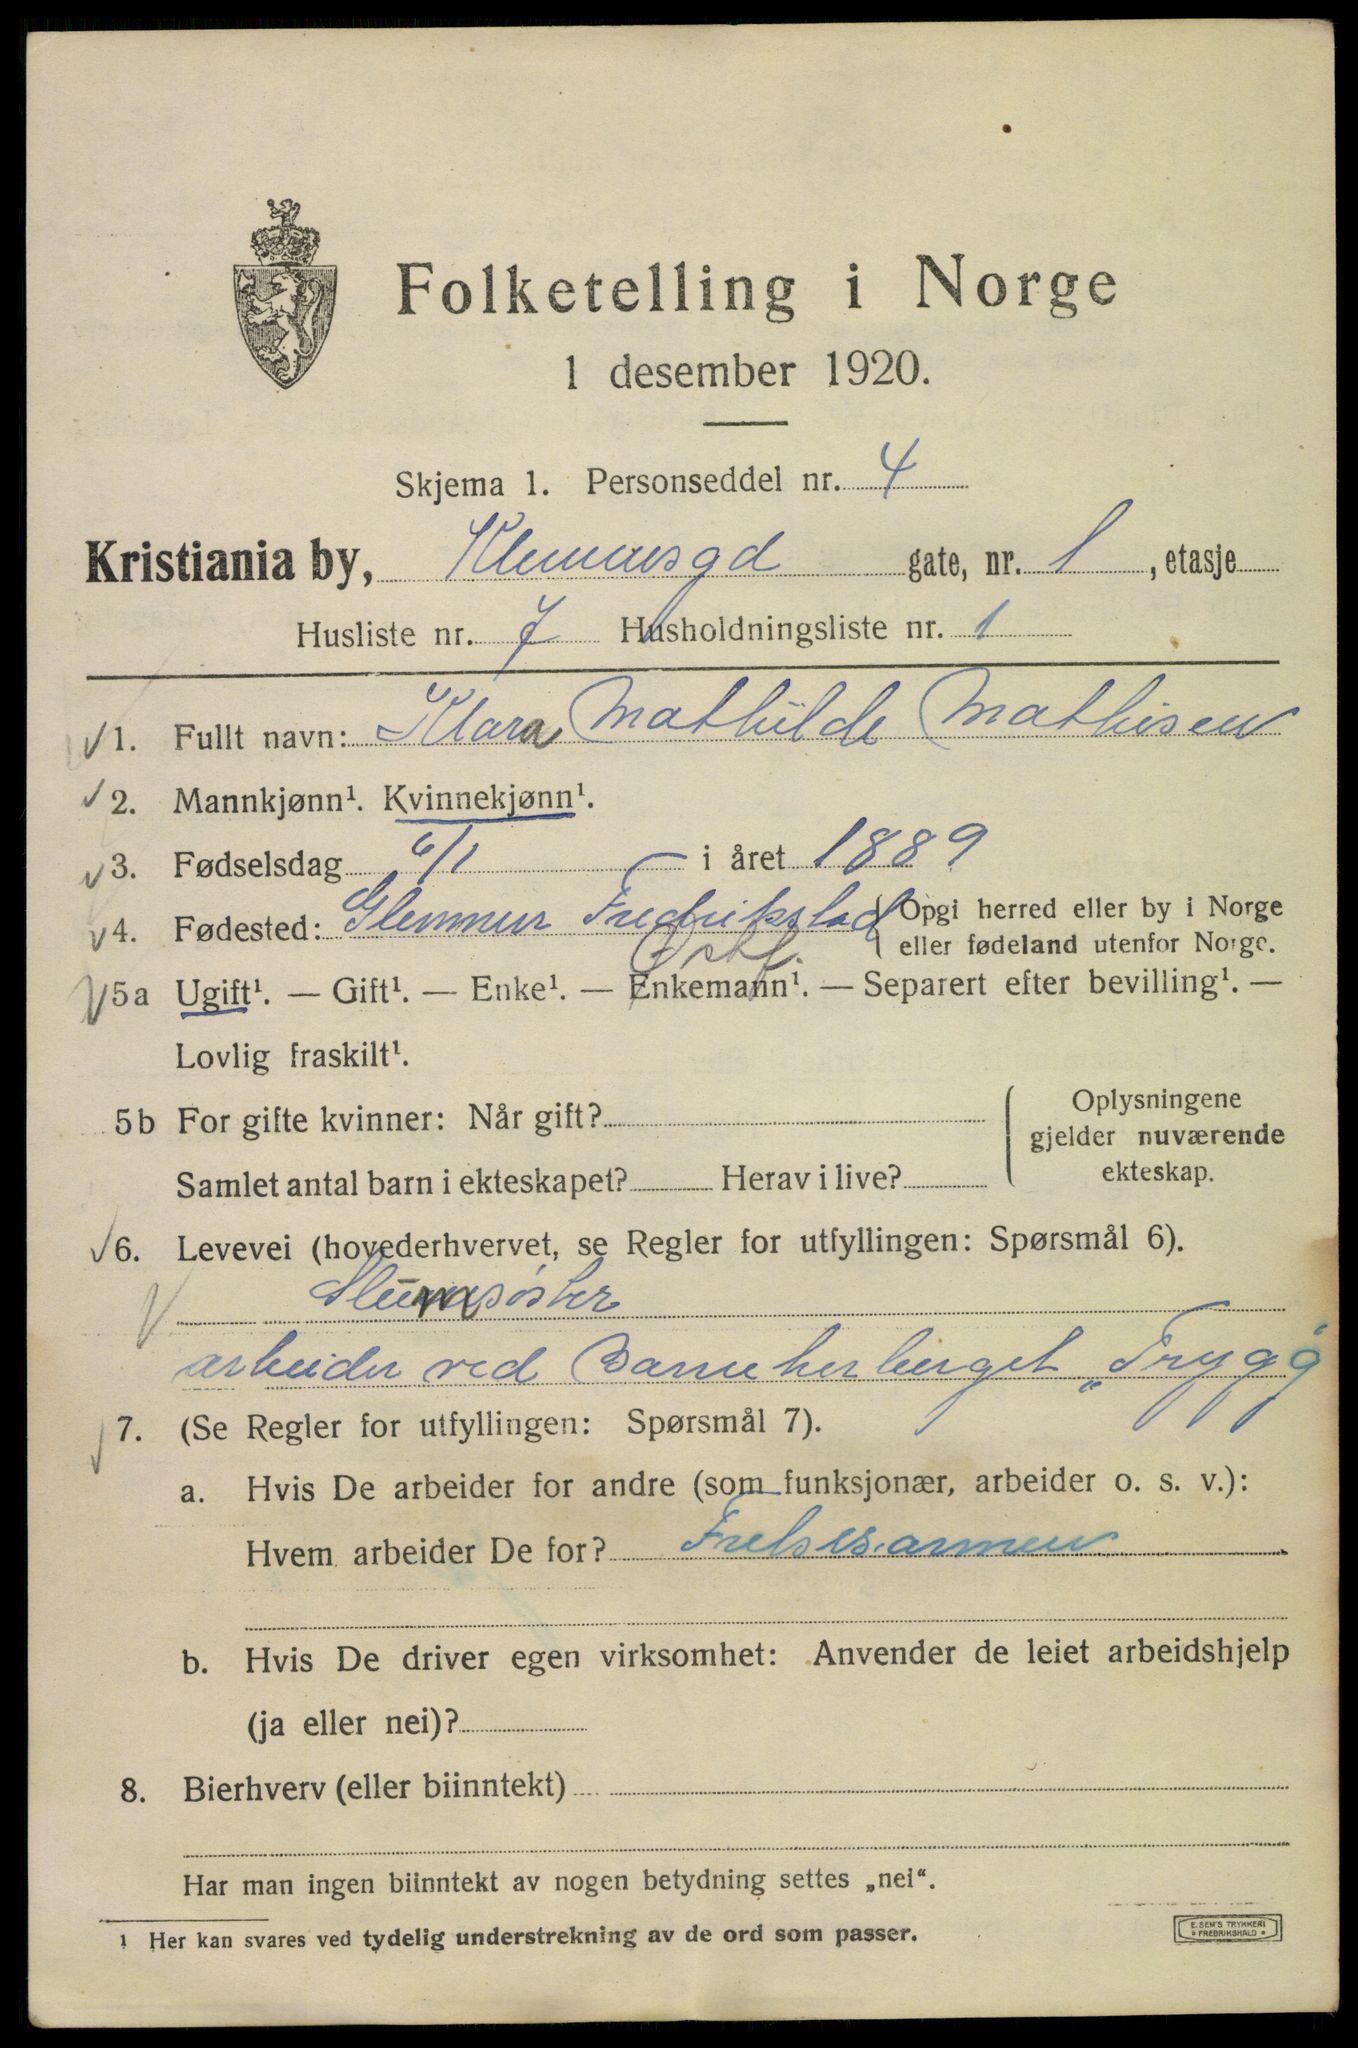 Folketelling i Norge
1 desember 1920.
Skjema 1. Personseddel nr. 4
Kristiania by, Klemmesgd gate, nr. 1, etasje
Husliste nr. 7 Husholdningsliste nr. 1
1. Fullt navn: Klara Mathilde Mathisen
2. Mannkjønn¹. Kvinnekjønn¹.
3. Fødselsdag 6/1 i året 1889
4. Fødested: Glemmen Fredrikstad { Opgi herred eller by i Norge
Østf. eller fødeland utenfor Norge.
5a Ugift¹. — Gift¹. — Enke¹. — Enkemann¹. — Separert efter bevilling¹. —
Lovlig fraskilt¹.
5b For gifte kvinner: Når gift? { Oplysningene
gjelder nuværende
Samlet antal barn i ekteskapet? Herav i live? ekteskap.
6. Levevei (hovederhvervet, se Regler for utfyllingen: Spørsmål 6).
Slumsøster
arbeider ved Barneherberget „Trygg"
7. (Se Regler for utfyllingen: Spørsmål 7).
a. Hvis De arbeider for andre (som funksjonær, arbeider o. s. v.):
Hvem arbeider De for? Frelsesarmeen
b. Hvis De driver egen virksomhet: Anvender de leiet arbeidshjelp
(ja eller nei)?
8. Bierhverv (eller biinntekt)
Har man ingen biinntekt av nogen betydning settes „nei“.
1 Her kan svares ved tydelig understrekning av de ord som passer.
E. SEM'S TRYKKERI
* FREDRIKSHALD *